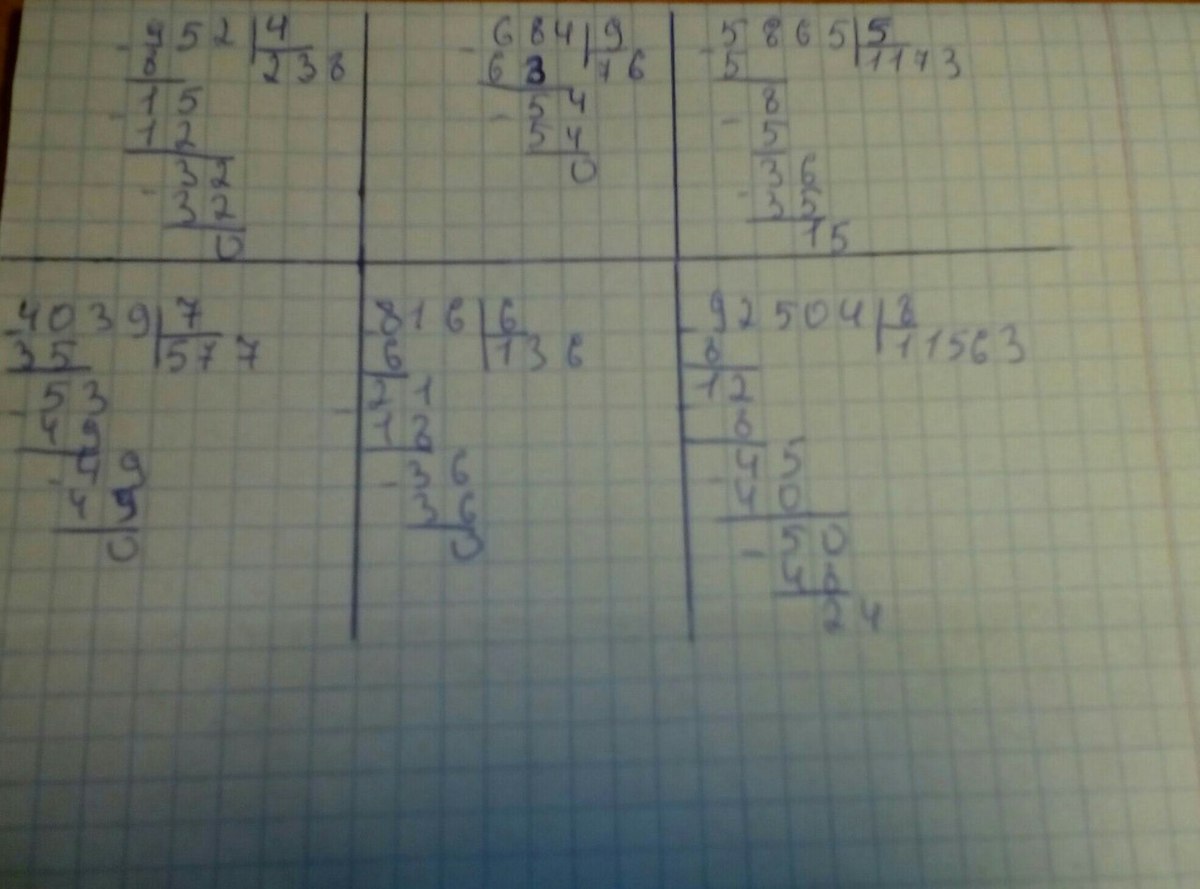 952 4
8 238
15
12
32
32
0
684 9
63 76
54
54
0
5865 5
5 1173
8
5
36
35
15
4039 7
35 577
53
49
49
49
0
816 6
6 136
21
18
36
36
0
92504 8
8 11563
12
8
45
40
50
48
24